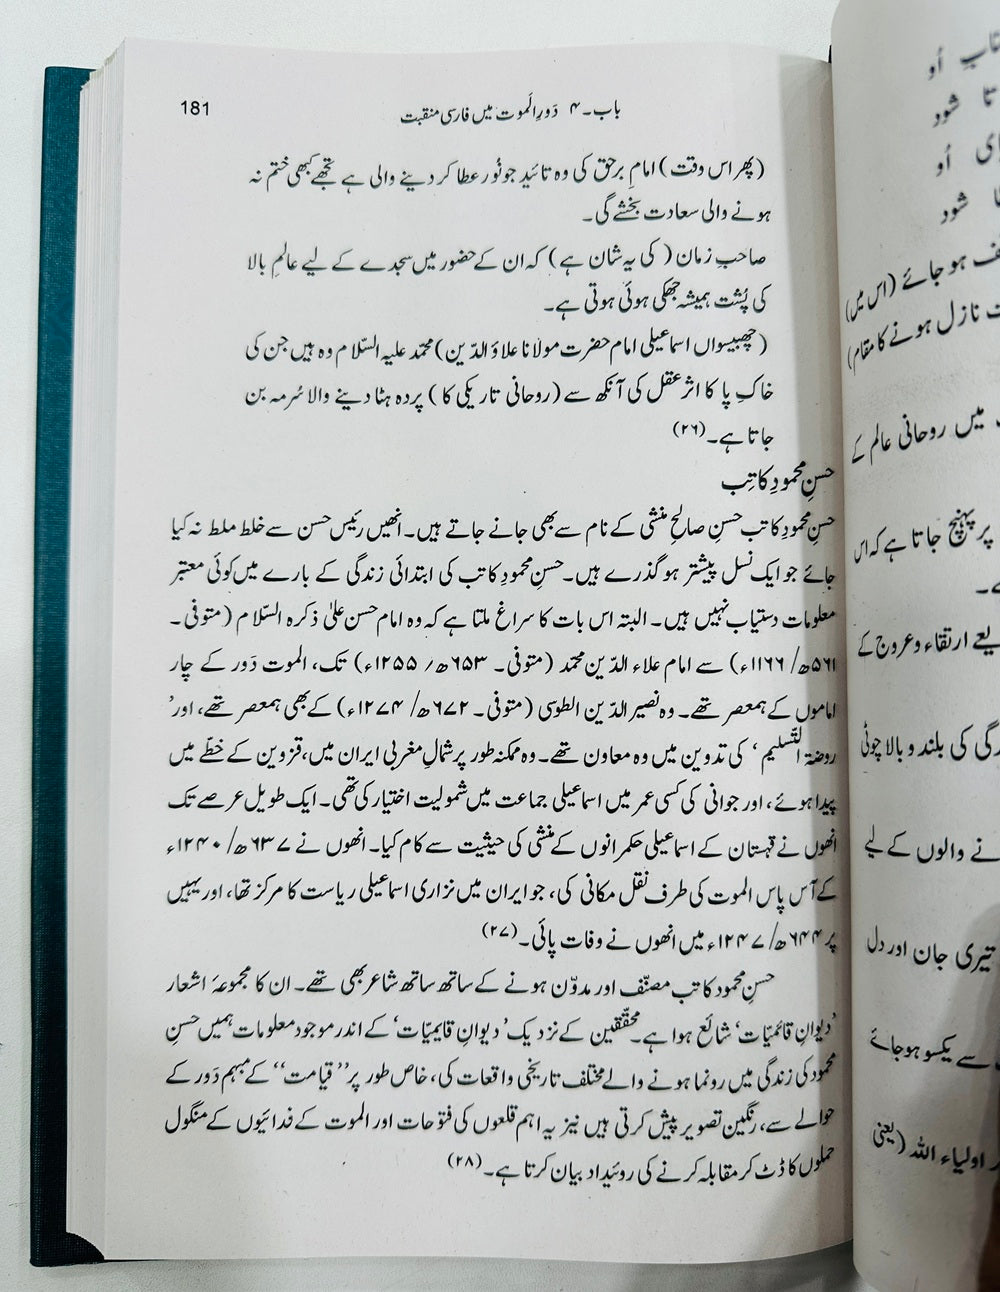 باب۔۴ دَورِ الَموت میں فارسی منقبت
181
(پھر اس وقت) امامِ برحق کی وہ تائید جو نُور عطا کر دینے والی ہے تجھے کبھی ختم نہ
ہونے والی سعادت بخشے گی۔
صاحبِ زمان (کی یہ شان ہے) کہ ان کے حضور میں سجدے کے لیے عالمِ بالا
کی پُشت ہمیشہ جھکی ہوئی ہوتی ہے۔
(چھبیسواں اسماعیلی امام حضرت مولانا علاؤ الدّین) محمّد علیہ السّلام وہ ہیں جن کی
خاکِ پا کا اثر عقل کی آنکھ سے (روحانی تاریکی کا) پردہ ہٹا دینے والا سُرمہ بن
جاتا ہے۔(۲۶)
حسنِ محمودِ کاتِب
حسنِ محمودِ کاتب حسنِ صالحِ منشی کے نام سے بھی جانے جاتے ہیں۔ انھیں رئیس حسن سے خلط ملط نہ کیا
جائے جو ایک نسل پیشتر ہو گذرے ہیں۔ حسنِ محمودِ کاتب کی ابتدائی زندگی کے بارے میں کوئی معتبر
معلومات دستیاب نہیں ہیں۔ البتہ اس بات کا سراغ ملتا ہے کہ وہ امام حسن علیٰ ذکرہ السّلام (متوفی۔
۵۶۱ھ/۱۱۶۶ء) سے امام علاء الدّین محمّد (متوفی۔ ۶۵۳ھ/۱۲۵۵ء) تک، الموت دَور کے چار
اماموں کے ہمعصر تھے۔ وہ نصیر الدّین الطوسی (متوفی۔ ۶۷۲ھ/۱۲۷۴ء) کے بھی ہمعصر تھے، اور '
روضۃ التّسلیم ' کی تدوین میں وہ معاون تھے۔ وہ ممکنہ طور پر شمالِ مغربی ایران میں، قزوین کے خطّے میں
پیدا ہوئے، اور جوانی کی کسی عمر میں اسماعیلی جماعت میں شمولیت اختیار کی تھی۔ ایک طویل عرصے تک
انھوں نے قہستان کے اسماعیلی حکمرانوں کے منشی کی حیثیت سے کام کیا۔ انھوں نے ۶۳۷ھ/۱۲۴۰ء
کے آس پاس الموت کی طرف نقل مکانی کی، جو ایران میں نزاری اسماعیلی ریاست کا مرکز تھا، اور یہیں
پر ۶۴۴ھ/۱۲۴۷ء میں انھوں نے وفات پائی۔(۲۷)
حسنِ محمود کاتب مصنّف اور مدوّن ہونے کے ساتھ ساتھ شاعر بھی تھے۔ ان کا مجموعۂ اشعار
'دیوانِ قائمیّات' شائع ہوا ہے۔ محقّقین کے نزدیک 'دیوانِ قایمیّات' کے اندر موجود معلومات ہمیں حسنِ
محمود کی زندگی میں رونما ہونے والے مختلف تاریخی واقعات کی، خاص طور پر ''قیامت'' کے مبہم دَور کے
حوالے سے، رنگین تصویر پیش کرتی ہیں نیز یہ اہم قلعوں کی فتوحات اور الموت کے فدائیوں کے منگول
حملوں کا ڈٹ کر مقابلہ کرنے کی روئیداد بیان کرتا ہے۔(۲۸)
اُو
تا شود
اُو
شود
ہو جائے (اس میں)
نازل ہونے کا مقام)
میں روحانی عالم کے
پر پہنچ جاتا ہے کہ اس
ارتقاء و عروج کے
کی بلند و بالا چوٹی
والوں کے لیے
تیری جان اور دل
سے یکسو ہو جائے
اولیاء اللہ (یعنی